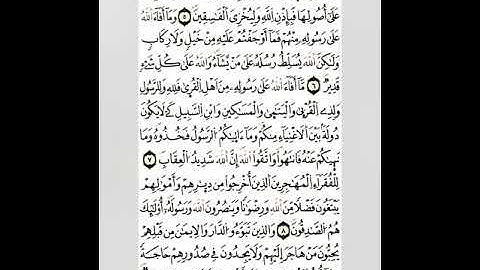 عَلَىٰ أُصُولِهَا فَبِإِذْنِ اللَّهِ وَلِيُخْزِيَ الْفَٰسِقِينَ ۝٥ وَمَا أَفَاءَ اللَّهُ
عَلَىٰ رَسُولِهِ مِنْهُمْ فَمَا أَوْجَفْتُمْ عَلَيْهِ مِنْ خَيْلٍ وَلَا رِكَابٍ
وَلَٰكِنَّ اللَّهَ يُسَلِّطُ رُسُلَهُ عَلَىٰ مَنْ يَشَاءُ وَاللَّهُ عَلَىٰ كُلِّ شَيْءٍ
قَدِيرٌ ۝٦ مَا أَفَاءَ اللَّهُ عَلَىٰ رَسُولِهِ مِنْ أَهْلِ الْقُرَىٰ فَلِلَّهِ وَلِلرَّسُولِ
وَلِذِي الْقُرْبَىٰ وَالْيَتَٰمَىٰ وَالْمَسَٰكِينِ وَابْنِ السَّبِيلِ كَيْ لَا يَكُونَ
دُولَةً بَيْنَ الْأَغْنِيَاءِ مِنْكُمْ وَمَا ءَاتَىٰكُمُ الرَّسُولُ فَخُذُوهُ وَمَا
نَهَىٰكُمْ عَنْهُ فَانْتَهُوا وَاتَّقُوا اللَّهَ إِنَّ اللَّهَ شَدِيدُ الْعِقَابِ ۝٧
لِلْفُقَرَاءِ الْمُهَٰجِرِينَ الَّذِينَ أُخْرِجُوا مِنْ دِيَٰرِهِمْ وَأَمْوَٰلِهِمْ
يَبْتَغُونَ فَضْلًا مِنَ اللَّهِ وَرِضْوَٰنًا وَيَنْصُرُونَ اللَّهَ وَرَسُولَهُ أُولَٰئِكَ
هُمُ الصَّٰدِقُونَ ۝٨ وَالَّذِينَ تَبَوَّءُو الدَّارَ وَالْإِيمَٰنَ مِنْ قَبْلِهِمْ
يُحِبُّونَ مَنْ هَاجَرَ إِلَيْهِمْ وَلَا يَجِدُونَ فِي صُدُورِهِمْ حَاجَةً